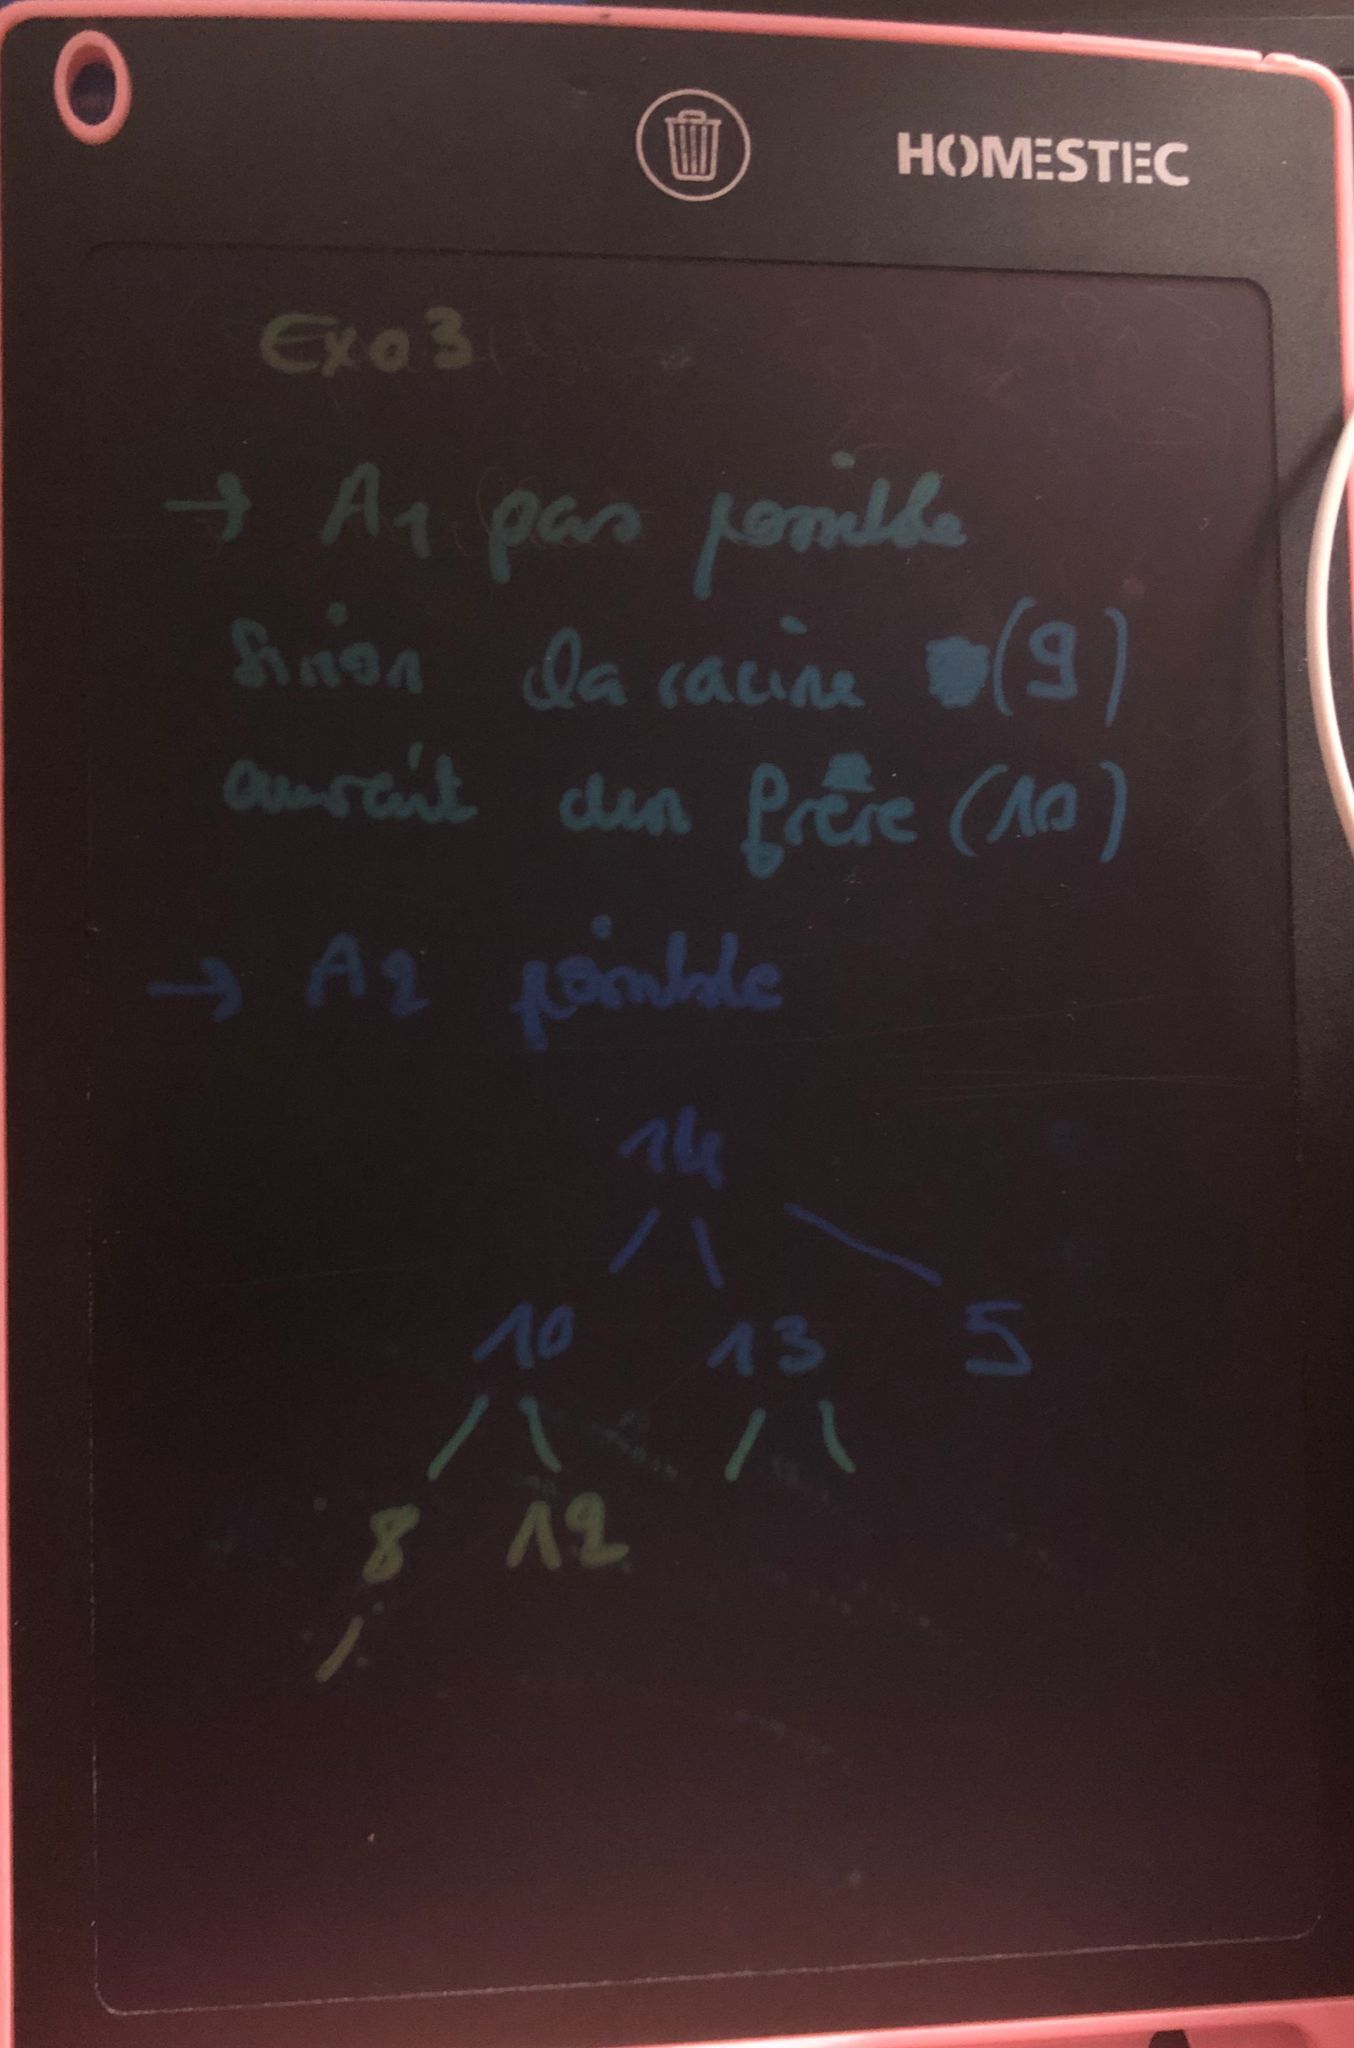 HOMESTEC
Exo 3
→ A1 pas possible
sinon la racine (9)
aurait un frère (10)
→ A2 possible
14
10 13 5
8 12